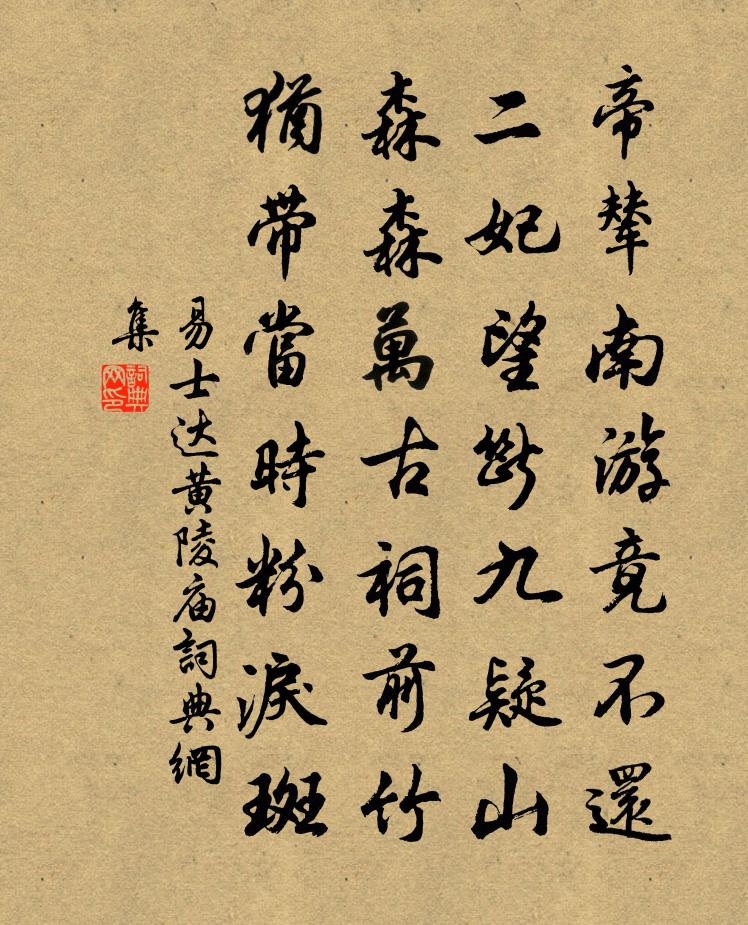 帝輦南游竟不還
二妃望斷九疑山
森森萬古祠前竹
猶帶當時粉淚斑
易士达黄陵庙詞典網
集
詞典
网印